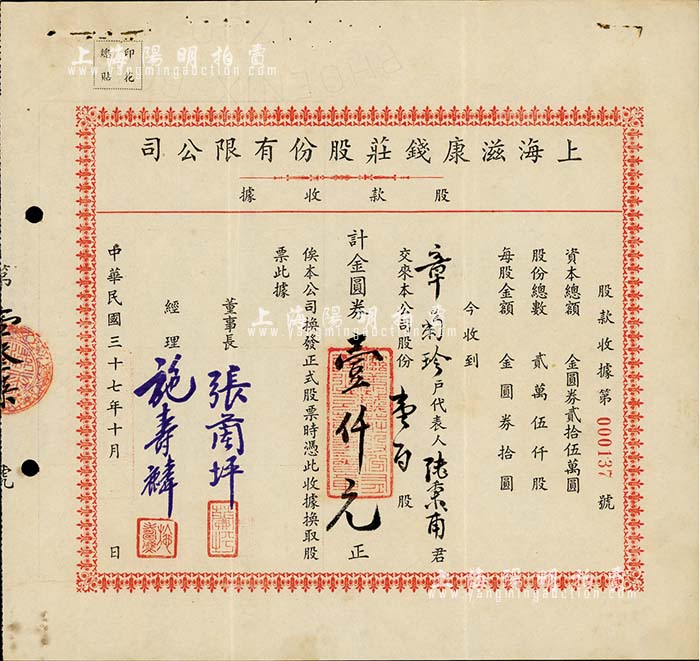 印花
總貼
上海陽明拍賣
www.yangmingauction.com
上海滋康錢莊股份有限公司
股款收據
股款收據第000137號
資本總額 金圓券貳拾伍萬圓
股份總數 貳萬伍仟股
每股金額 金圓券拾圓
今收到
章菊珍戶代表人陸秉甫君
交來本公司股份壹百股
計金圓券壹仟元正
俟本公司換發正式股票時憑此收據換取股
票此據
董事長 張蘭坪
經理 施壽麟
中華民國三十七年十月 日
上海陽明拍賣
www.yangmingauction.com
上海陽明拍賣
www.yangmingauction.com
第
號